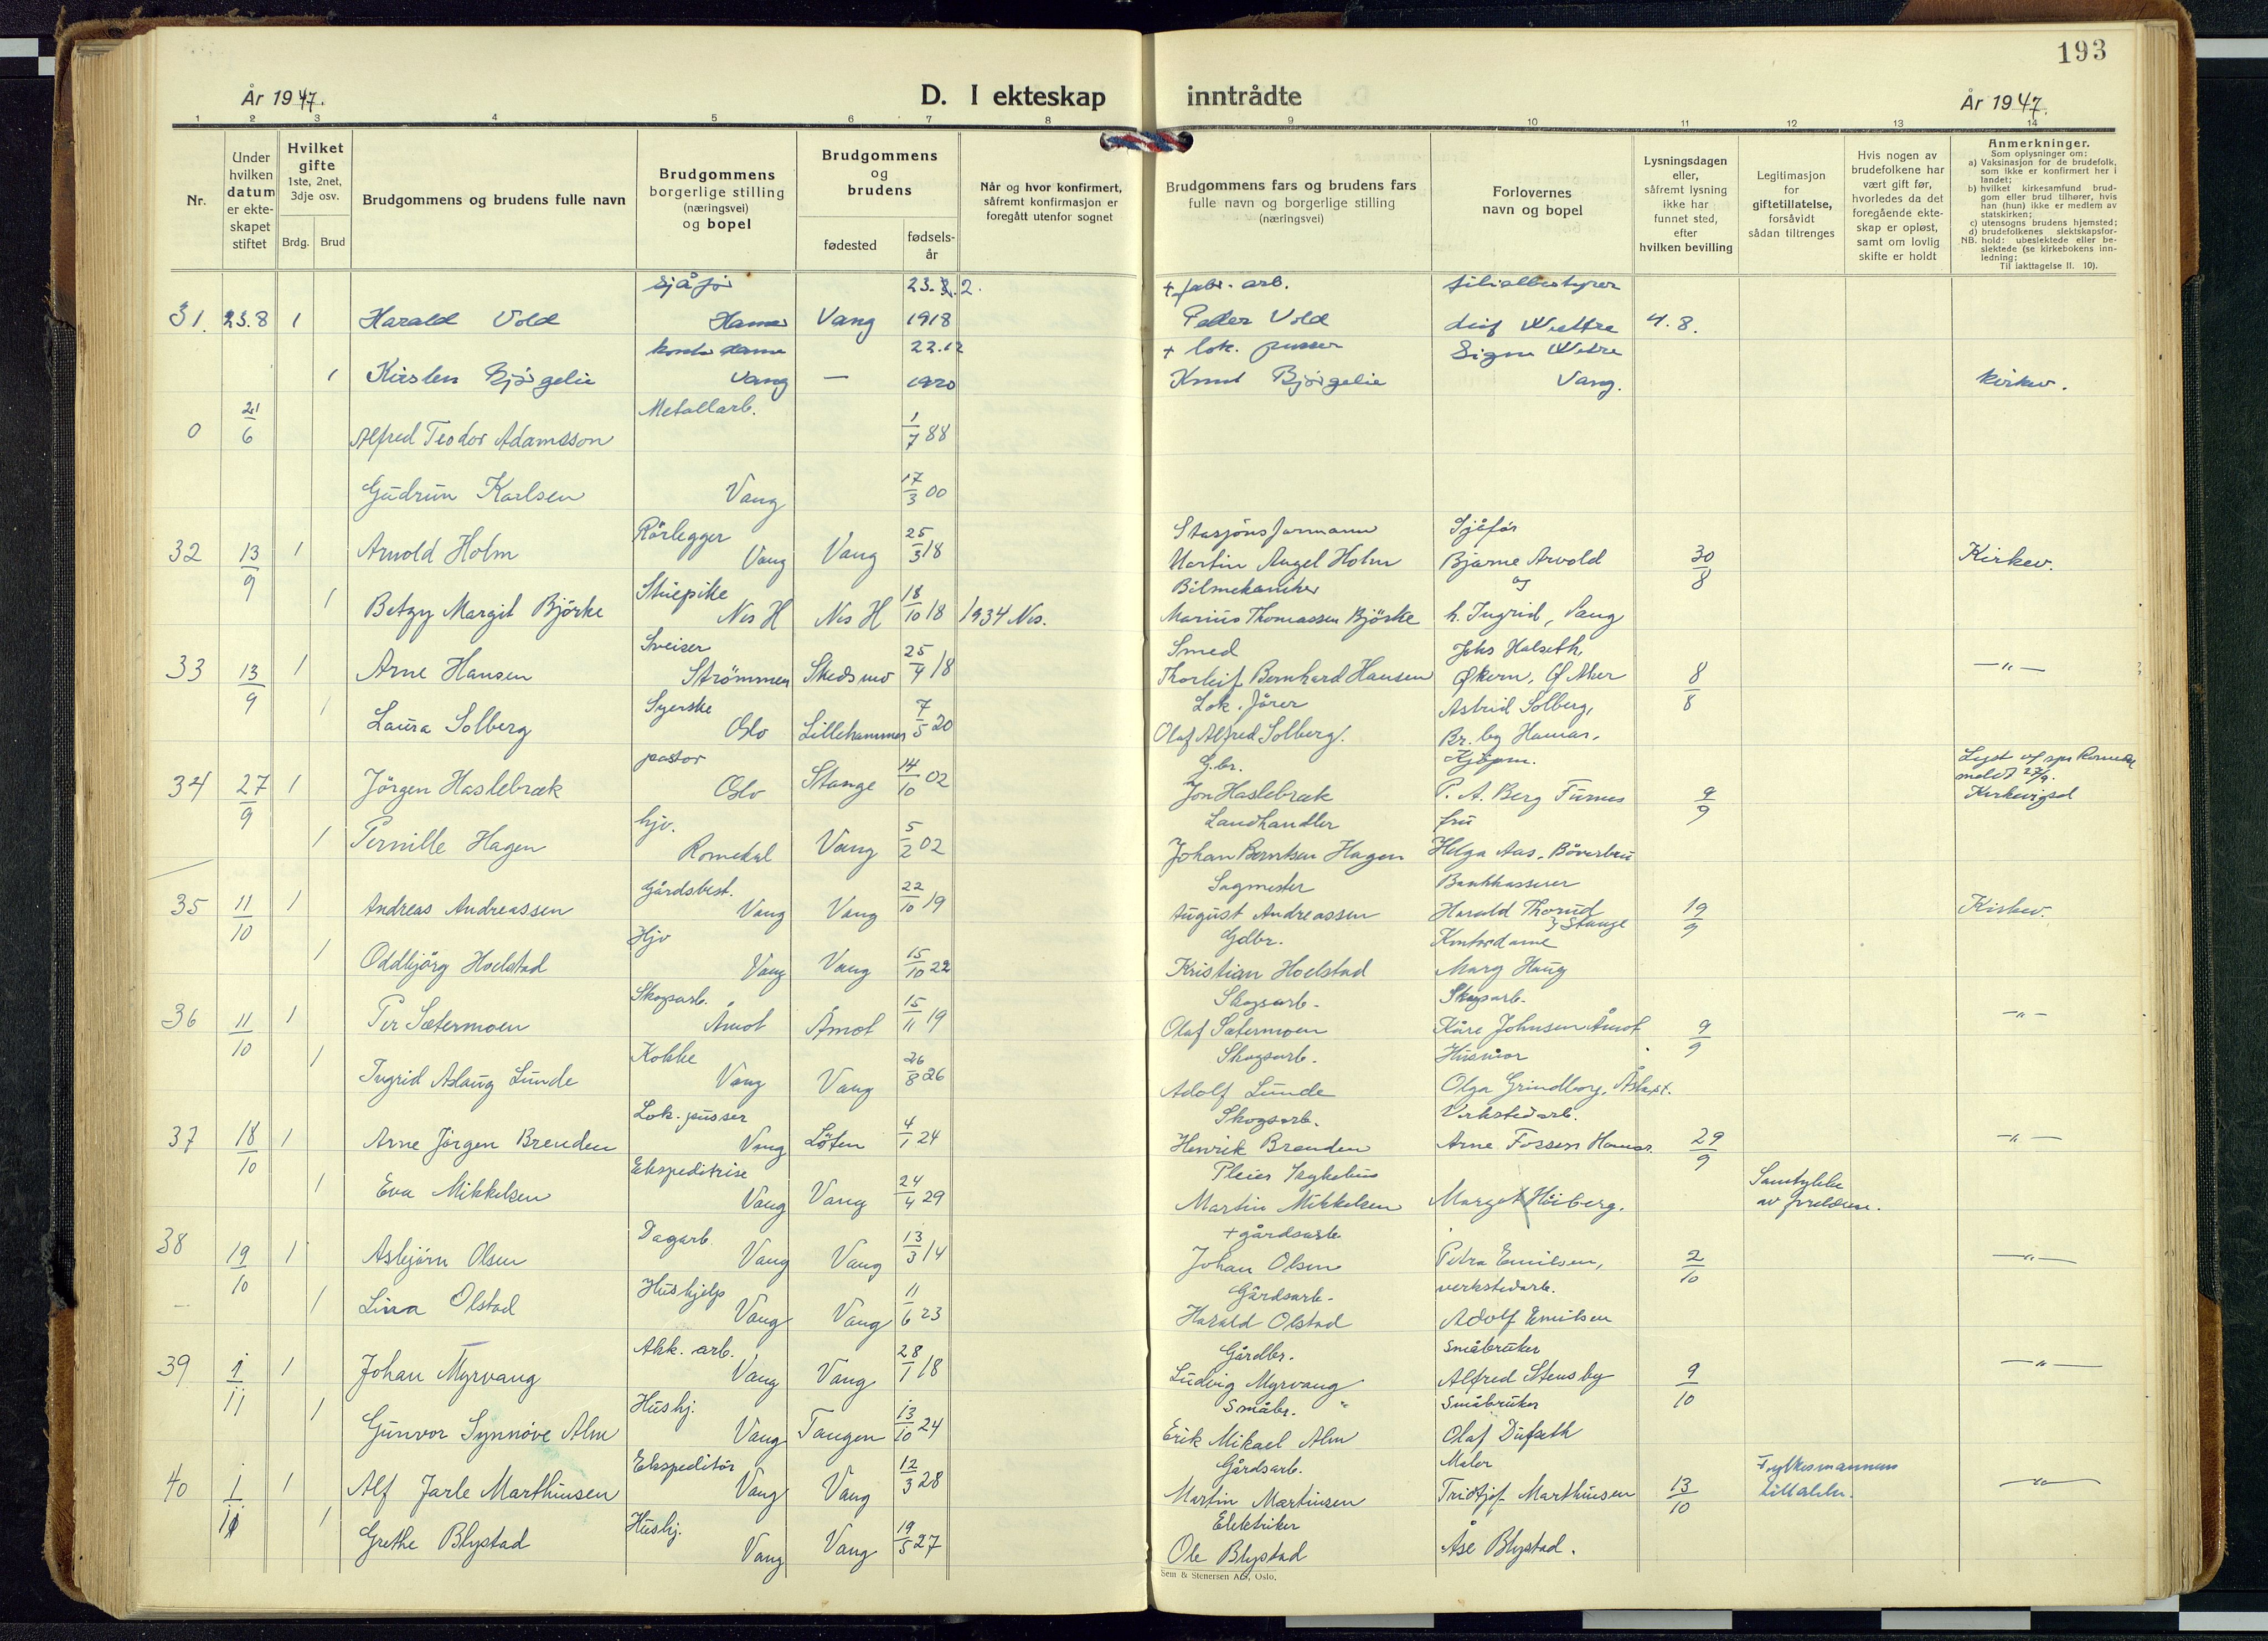 193
År 1947.
D. I ekteskap inntrådte
År 1947.
1 2 3 4 5 6 7 8 9 10 11 12 13 14
Nr.
Under hvilken datum er ekteskapet stiftet
Hvilket gifte 1ste, 2net, 3dje osv.
Brdg. Brud
Brudgommens og brudens fulle navn
Brudgommens borgerlige stilling (næringsvei) og bopel
Brudgommens og brudens
fødested
fødselsår
Når og hvor konfirmert, såfremt konfirmasjon er foregått utenfor sognet
Brudgommens fars og brudens fars fulle navn og borgerlige stilling (næringsvei)
Forlovernes navn og bopel
Lysningsdagen eller, såfremt lysning ikke har funnet sted, efter hvilken bevilling
Legitimasjon for giftetillatelse, forsåvidt sådan tiltrenges
Hvis nogen av brudefolkene har vært gift før, hvorledes da det foregående ekteskap er opløst, samt om lovlig skifte er holdt
Anmerkninger.
Som oplysninger om:
a) Vaksinasjon for de brudefolk, som ikke er konfirmert her i landet;
b) hvilket kirkesamfund brudgom eller brud tilhører, hvis han (hun) ikke er medlem av statskirken;
c) utensogns brudens hjemsted;
d) brudefolkenes slektskapsforhold: ubeslektede eller beslektede (se kirkebokens innledning;
NB. Til iakttagelse II. 10).
sjåfør 23.2. + fabr. arb. filialbestyrer
31. 23.8 1 Harald Vold Hamar Vang 1918 Peder Vold Leif 4.8.
kontordame 22.12 + lok. pusser Signe
1 Kirsten Bjørgelie Vang — 1920 Knut Bjørgelie Vang. kirkev.
0 21/6 Alfred Teodor Adamsson Metallarb. 1/7 88
Gudrun Karlsen Vang 17/3 00
Rørlegger Stasjonsformann Sjåfør
32 13/9 1 Arnold Holm Vang Vang 25/3 18 Martin Angel Holm Bjarne Arvold 30/8 Kirkev.
Stuepike Bilmekaniker og
1 Betzy Margit Bjørke Nes H Nes H 18/10 18 1934 Nes. Marius Thomassen Bjørke h. Ingrid, Vang
Sveiser Smed Johs Halseth,
33 13/9 1 Arne Hansen Strømmen Skedsmo 25/4 18 Thorleif Bernhard Hansen Økern, Ø Aker 8/8 —"—
Syerske Lok. fører Astrid Solberg,
1 Laura Solberg Oslo Lillehammer 7/5 20 Olaf Alfred Solberg. Br. by Hamar.
pastor G.br. Kjøpm. Lyst
34 27/9 1 Jørgen Haslebræk Oslo Stange 14/10 02 Jon Haslebræk P. A. Berg Furnes 9/9 Kirkevigsel
hjv. Landhandler fru
1 Pernille Hagen Romedal Vang 5/2 02 Johan Berntsen Hagen Helga Aas, Bøverbru
Gårdsbest. Sagmester Bankkasserer
35 11/10 1 Andreas Andreassen Vang Vang 22/10 19 August Andreassen Harald Thorud } Stange 19/9 Kirkev.
Hjv Gdbr. Kontordame
1 Oddbjørg Hoelstad Vang Vang 15/10 22 Kristian Hoelstad Marg Haug
Skogsarb. Skogsarb. Skogsarb.
36 11/10 1 Per Sætermoen Åmot Åmot 15/11 19 Olaf Sætermoen Kåre Johnsen Åmot 9/9 —"—
Kokke Skogsarb. Husmor
1 Ingrid Aslaug Lunde Vang Vang 26/8 26 Adolf Lunde Olga Grindberg,
Lok. pusser Skogsarb. Verkstedarb.
37 18/10 1 Arne Jørgen Brenden Vang Løten 4/1 24 Henrik Brenden Arne Fossen Hamar. 29/9 —"—
Ekspeditrise Pleier Sykehus Samtykke
1 Eva Mikkelsen Vang Vang 24/4 29 Martin Mikkelsen Margot Høiberg. av foreldrene.
Dagarb. + gårdsarb.
38 19/10 1 Asbjørn Olsen Vang Vang 13/3 14 Johan Olsen Petra Emilsen, 2/10 —"—
Hushjelp Gårdsarb. verkstedarb.
1 Lina Olstad Vang Vang 11/6 23 Harald Olstad Adolf Emilsen
Akk. arb. Gårdbr. Småbruker
39 1/11 1 Johan Myrvang Vang Vang 28/1 18 Ludvig Myrvang Alfred Stensby 9/10 —"—
Hushj. Småbr. " Småbruker
1 Gunvor Synnøve Alm Vang Tangen 13/10 24 Erik Mikael Alm Olaf Dufseth
Ekspeditør Gårdsarb. Maler Fylkesmannens
40 1/11 1 Alf Jarle Marthinsen Vang Vang 12/3 28 Martin Martinsen Fridtjof Marthinsen 13/10 tillatelse. —"—
Hushj. Elektriker
1 Grethe Blystad Vang Vang 19/5 27 Ole Blystad Åse Blystad.
Sem & Stenersen A/S, Oslo.